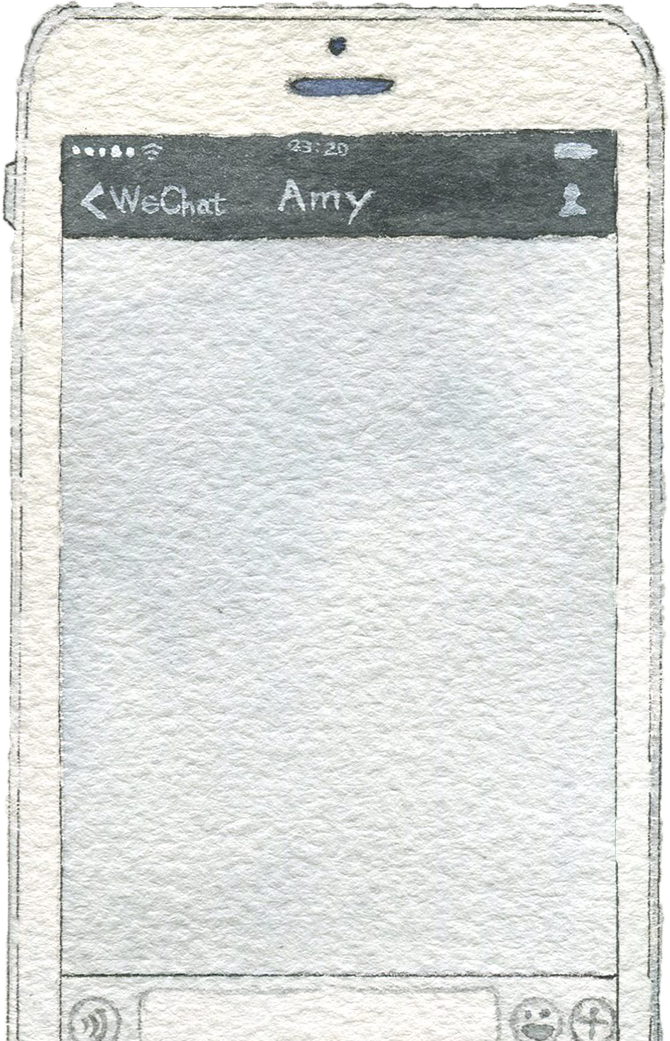 23:20
WeChat Amy